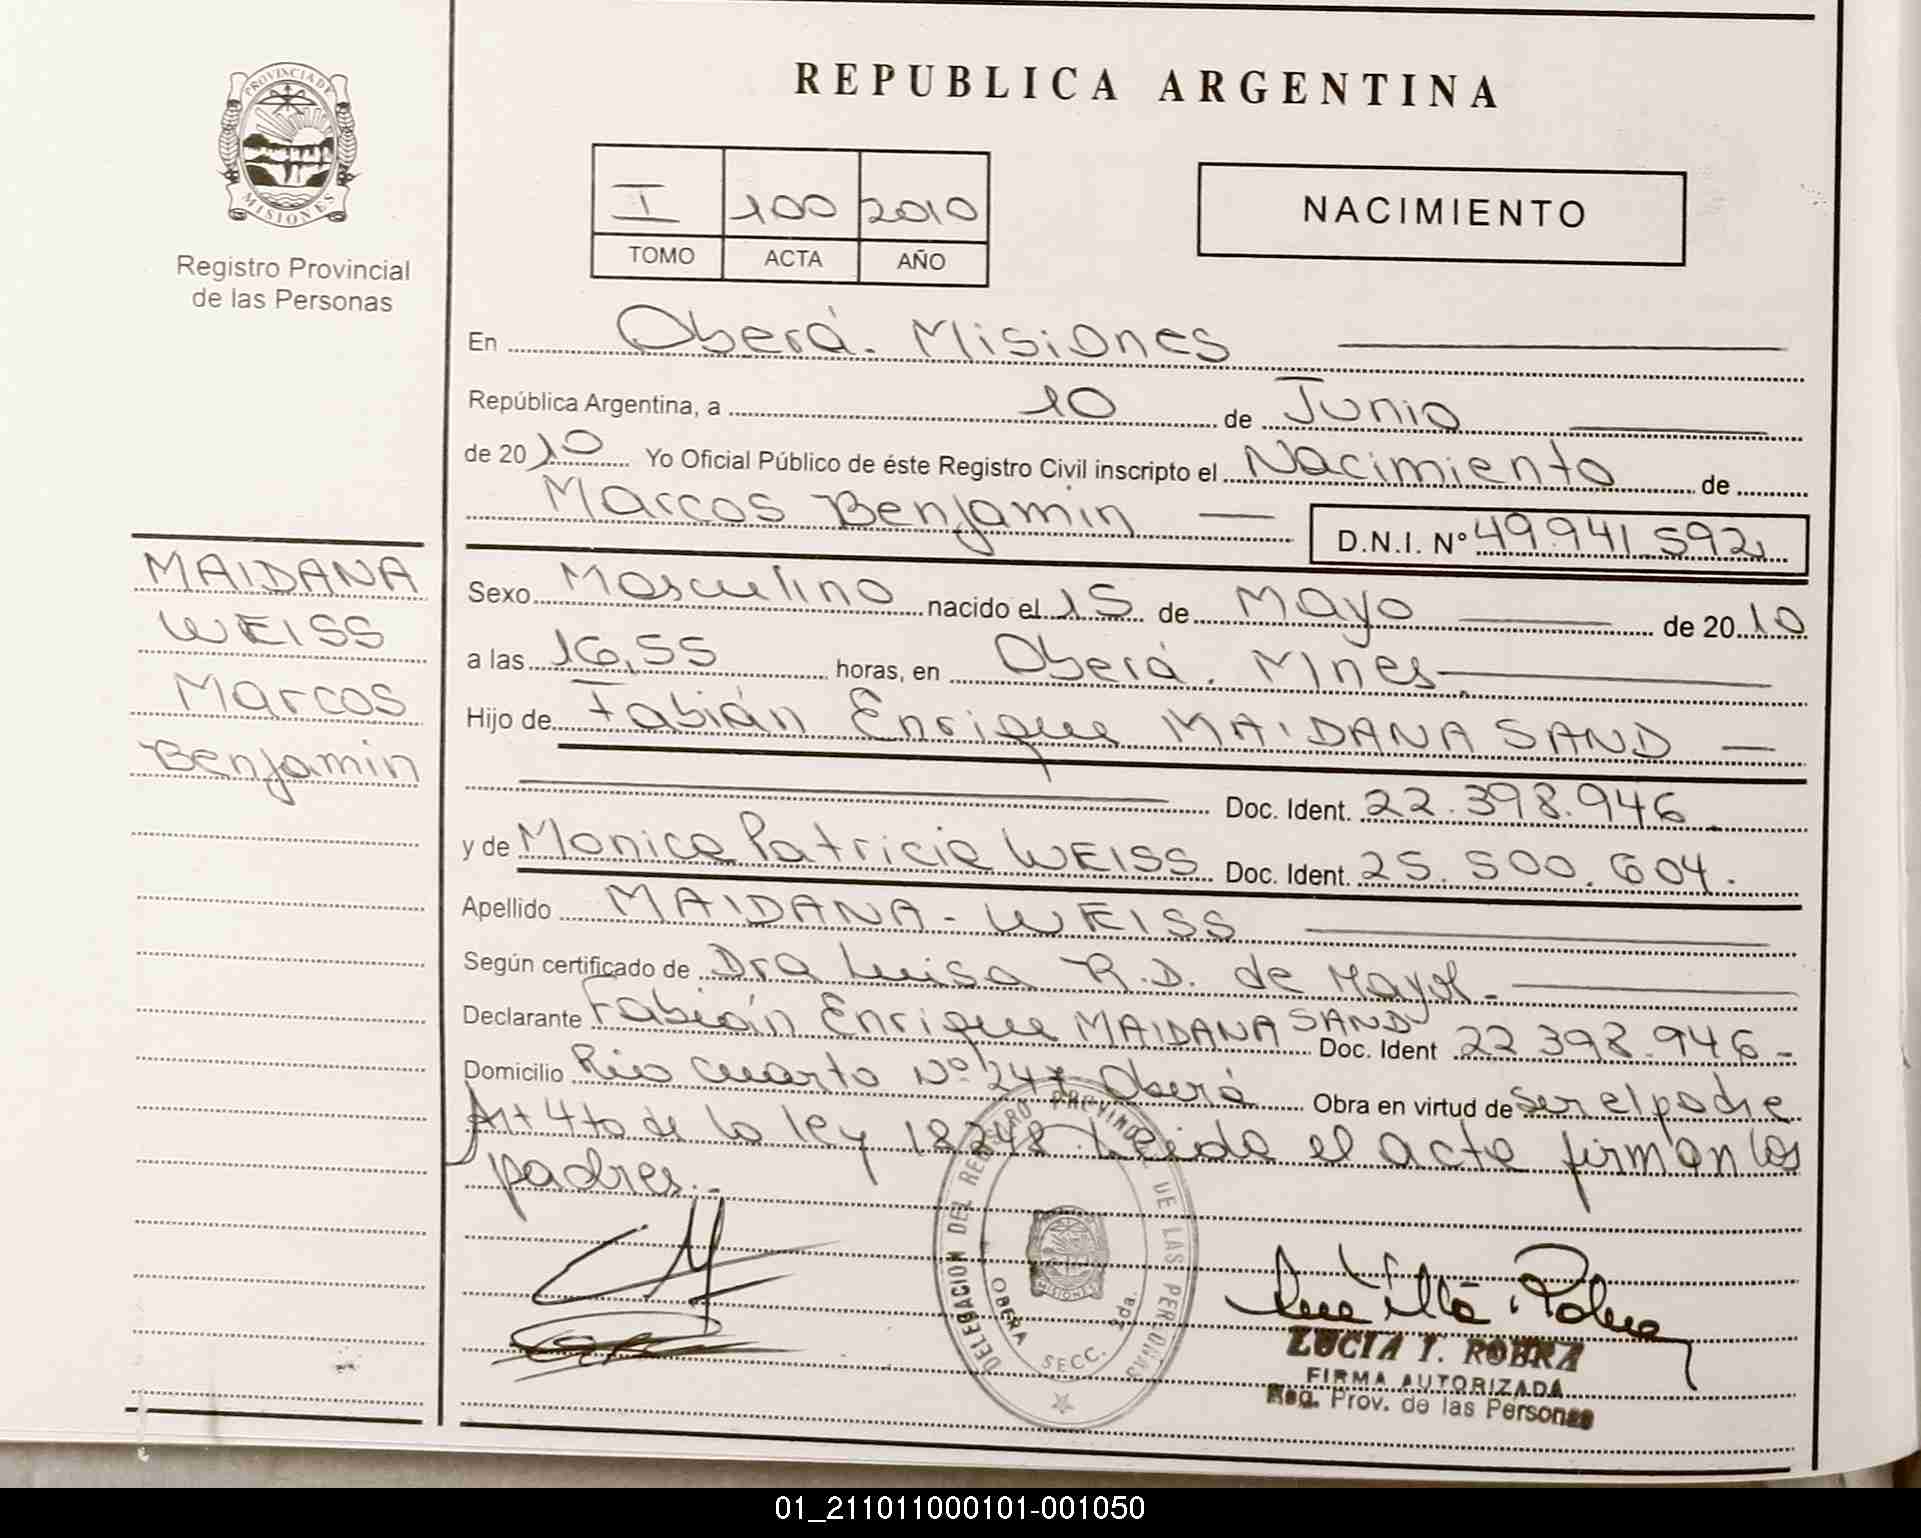 PROVINCIA DE
MISIONES
Registro Provincial
de las Personas
MAIDANA
WEISS
Marcos
Benjamin
REPUBLICA ARGENTINA
I 100 2010
TOMO ACTA AÑO
NACIMIENTO
En Oberá. Misiones
República Argentina, a 10 de Junio
de 2010 Yo Oficial Público de éste Registro Civil inscripto el Nacimiento de
Marcos Benjamin D.N.I. Nº 49.941.592
Sexo Masculino nacido el 15 de Mayo de 2010
a las 16,55 horas, en Oberá. Mnes
Hijo de Fabián Enrique MAIDANA SAND
Doc. Ident. 22.398.946
y de Monica Patricia WEISS Doc. Ident. 25.500.604.
Apellido MAIDANA - WEISS
Según certificado de Dra Luisa R.D. de Mayol
Declarante Fabián Enrique MAIDANA SAND Doc. Ident 22 398.946
Domicilio Rio Cuarto Nº 247 Oberá Obra en virtud de ser el padre
Art 4to de la ley 18248. Leida el acta firman los
padres.
DELEGACION DEL REGISTRO PROVINCIAL DE LAS PERSONAS
OBERA SECC. 2da.
LUCIA I. ROBRA
FIRMA AUTORIZADA
Reg. Prov. de las Personas
01_211011000101-001050